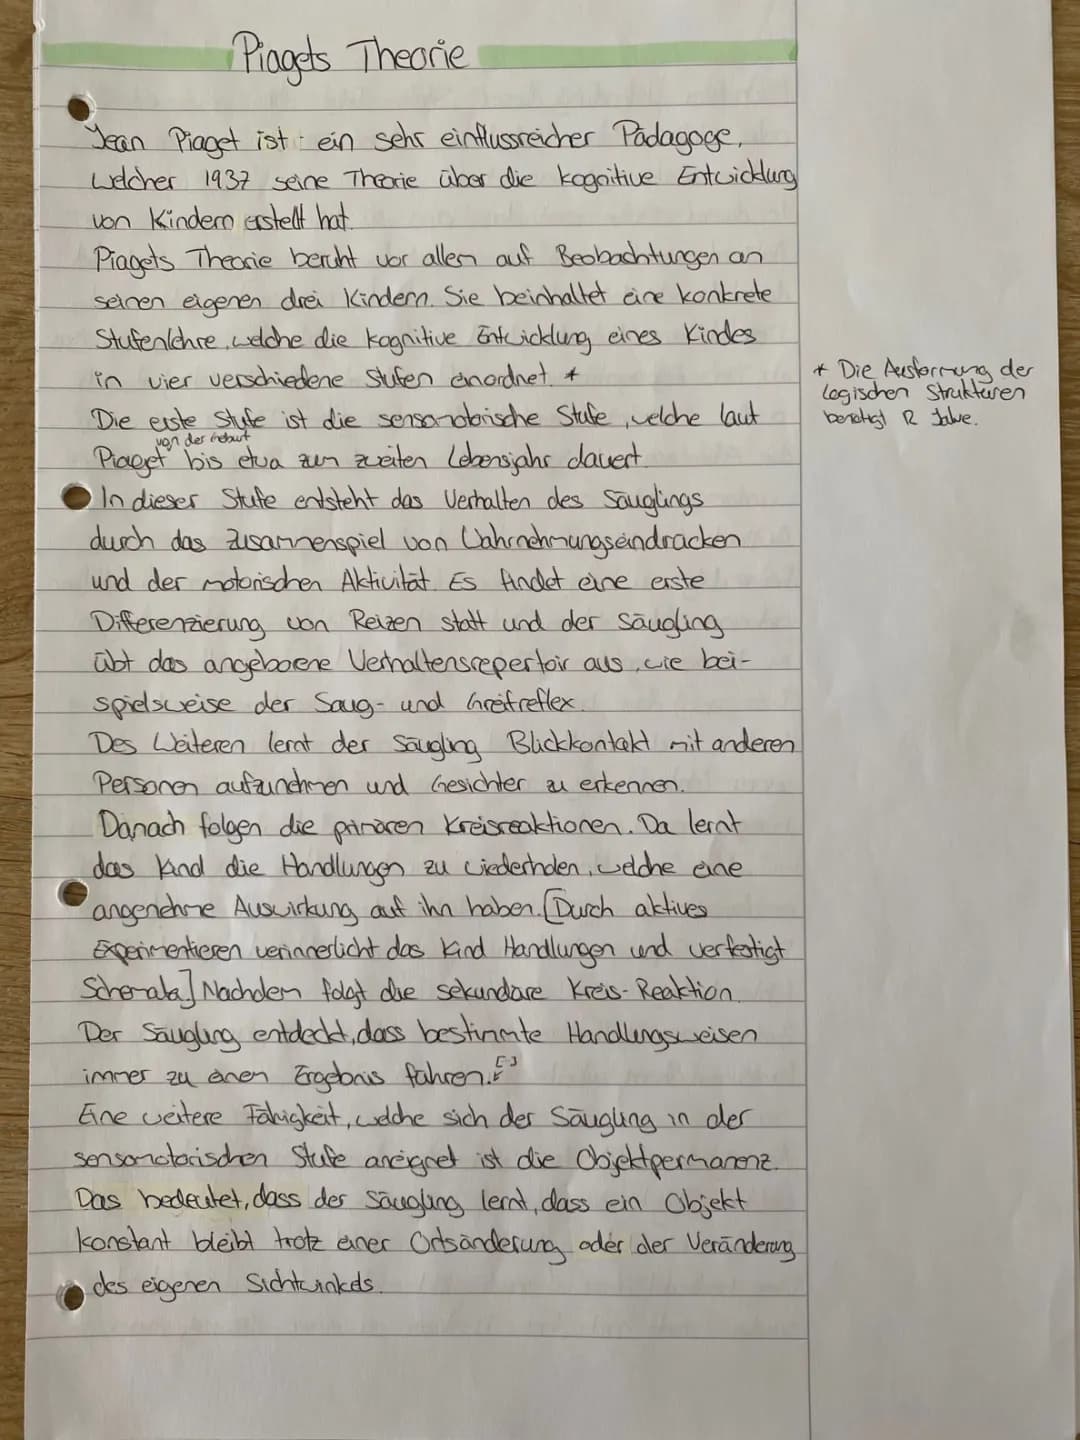 Piagets Theorie
Jean Piaget ist ein sehr einflussreicher Pädagoge,
welcher 1937 seine Theorie über die kognitive Entwicklung
von Kindern erstellt hat.
Piagets Theorie beruht vor allem auf Beobachtungen an
seinen eigenen drei Kindern. Sie beinhaltet eine konkrete
Stufenlehre, welche die kognitive Entwicklung eines Kindes
in vier verschiedene Stufen einordnet. *
* Die Ausformung der
logischen Strukturen
benötigt 12 Jahre.
Die erste Stufe ist die sensomotorische Stufe, welche laut
von der Geburt
Piaget bis etwa zum zweiten Lebensjahr dauert.
In dieser Stufe entsteht das Verhalten des Säuglings
durch das Zusammenspiel von Wahrnehmungseindrücken
und der motorischen Aktivität. Es findet eine erste
Differenzierung von Reizen statt und der Säugling
übt das angeborene Verhaltensrepertoir aus, wie bei-
spielsweise der Saug- und Greifreflex.
Des Weiteren lernt der Säugling Blickkontakt mit anderen
Personen aufzunehmen und Gesichter zu erkennen.
Danach folgen die primären Kreisreaktionen. Da lernt
das Kind die Handlungen zu wiederholen, welche eine
angenehme Auswirkung auf ihn haben. [Durch aktives
Experimentieren verinnerlicht das Kind Handlungen und verfestigt
Schemata] Nachdem folgt die sekundäre Kreis-Reaktion.
Der Säugling entdeckt, dass bestimmte Handlungsweisen
immer zu einem Ergebnis führen. [-]
Eine weitere Fähigkeit, welche sich der Säugling in der
sensomotorischen Stufe aneignet ist die Objektpermanenz.
Das bedeutet, dass der Säugling lernt, dass ein Objekt
konstant bleibt trotz einer Ortsänderung oder der Veränderung
des eigenen Sichtwinkels.